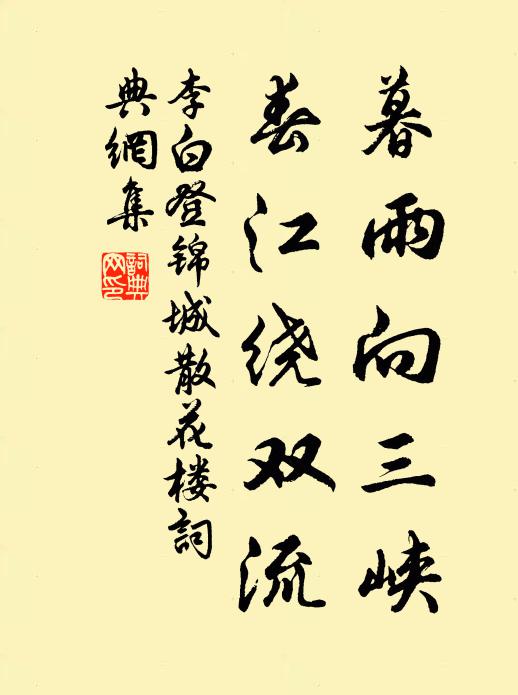 暮雨向三峡
春江绕双流
李白登锦城散花楼詞
典網集
詞典网印